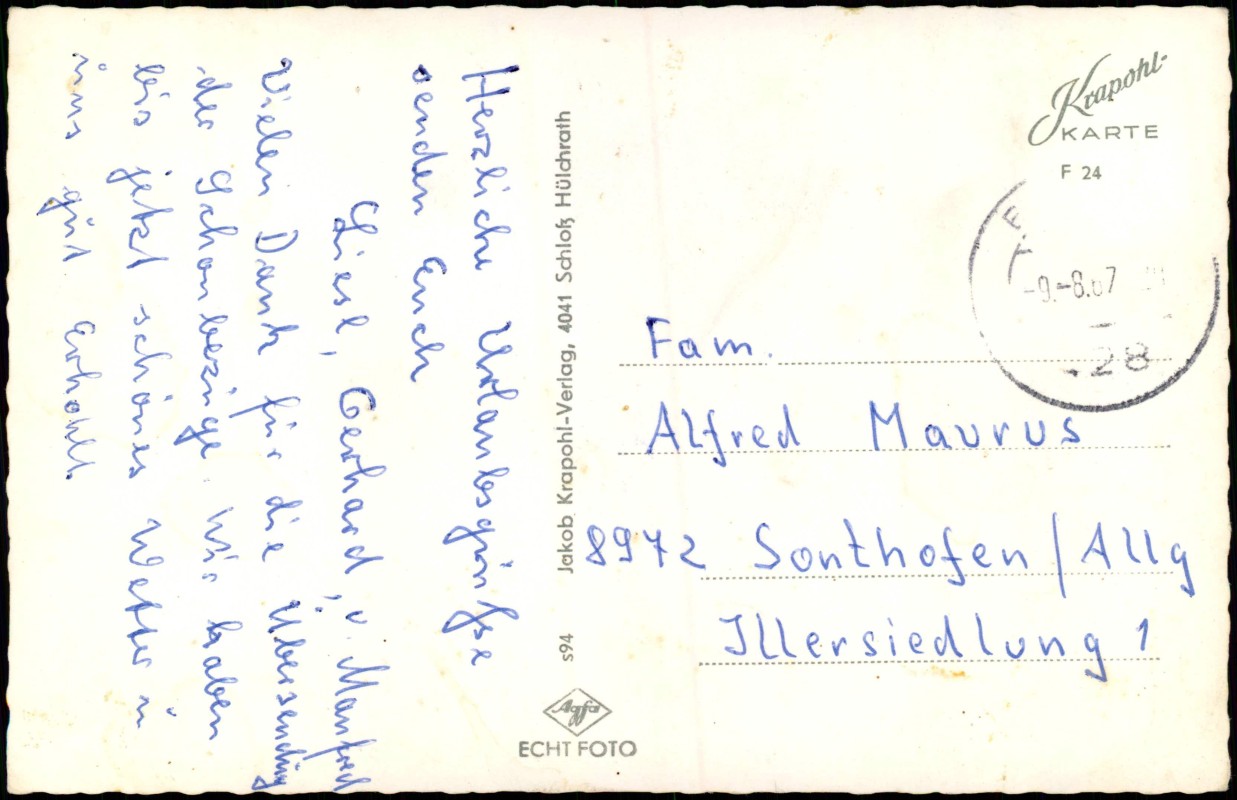 Herzliche Urlaubsgrüsse
senden Euch
Liesl, Gerhard, u. Manfred
Vielen Dank für die Übersendung
der Schonbezüge Wir haben
bis jetzt schönes Wetter u
uns gut erholt.
Jakob Krapohl-Verlag, 4041 Schloß Hülchrath
s94
Agfa
ECHT FOTO
Krapohl-
KARTE
F 24
-9.-8.67
28
Fam.
Alfred Maurus
8972 Sonthofen/Allg
Illersiedlung 1